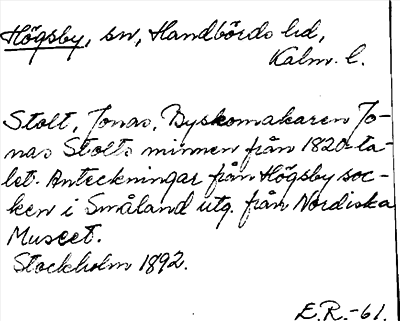 Högsby, sn, Handbörds hd,
Kalm. l.
Stolt, Jonas, Byskomakaren Jo-
nas Stolts minnen från 1820-ta-
let. Anteckningar från Högsby soc-
ken i Småland utg. från Nordiska
Museet.
Stockholm 1892.
E.R.-61.